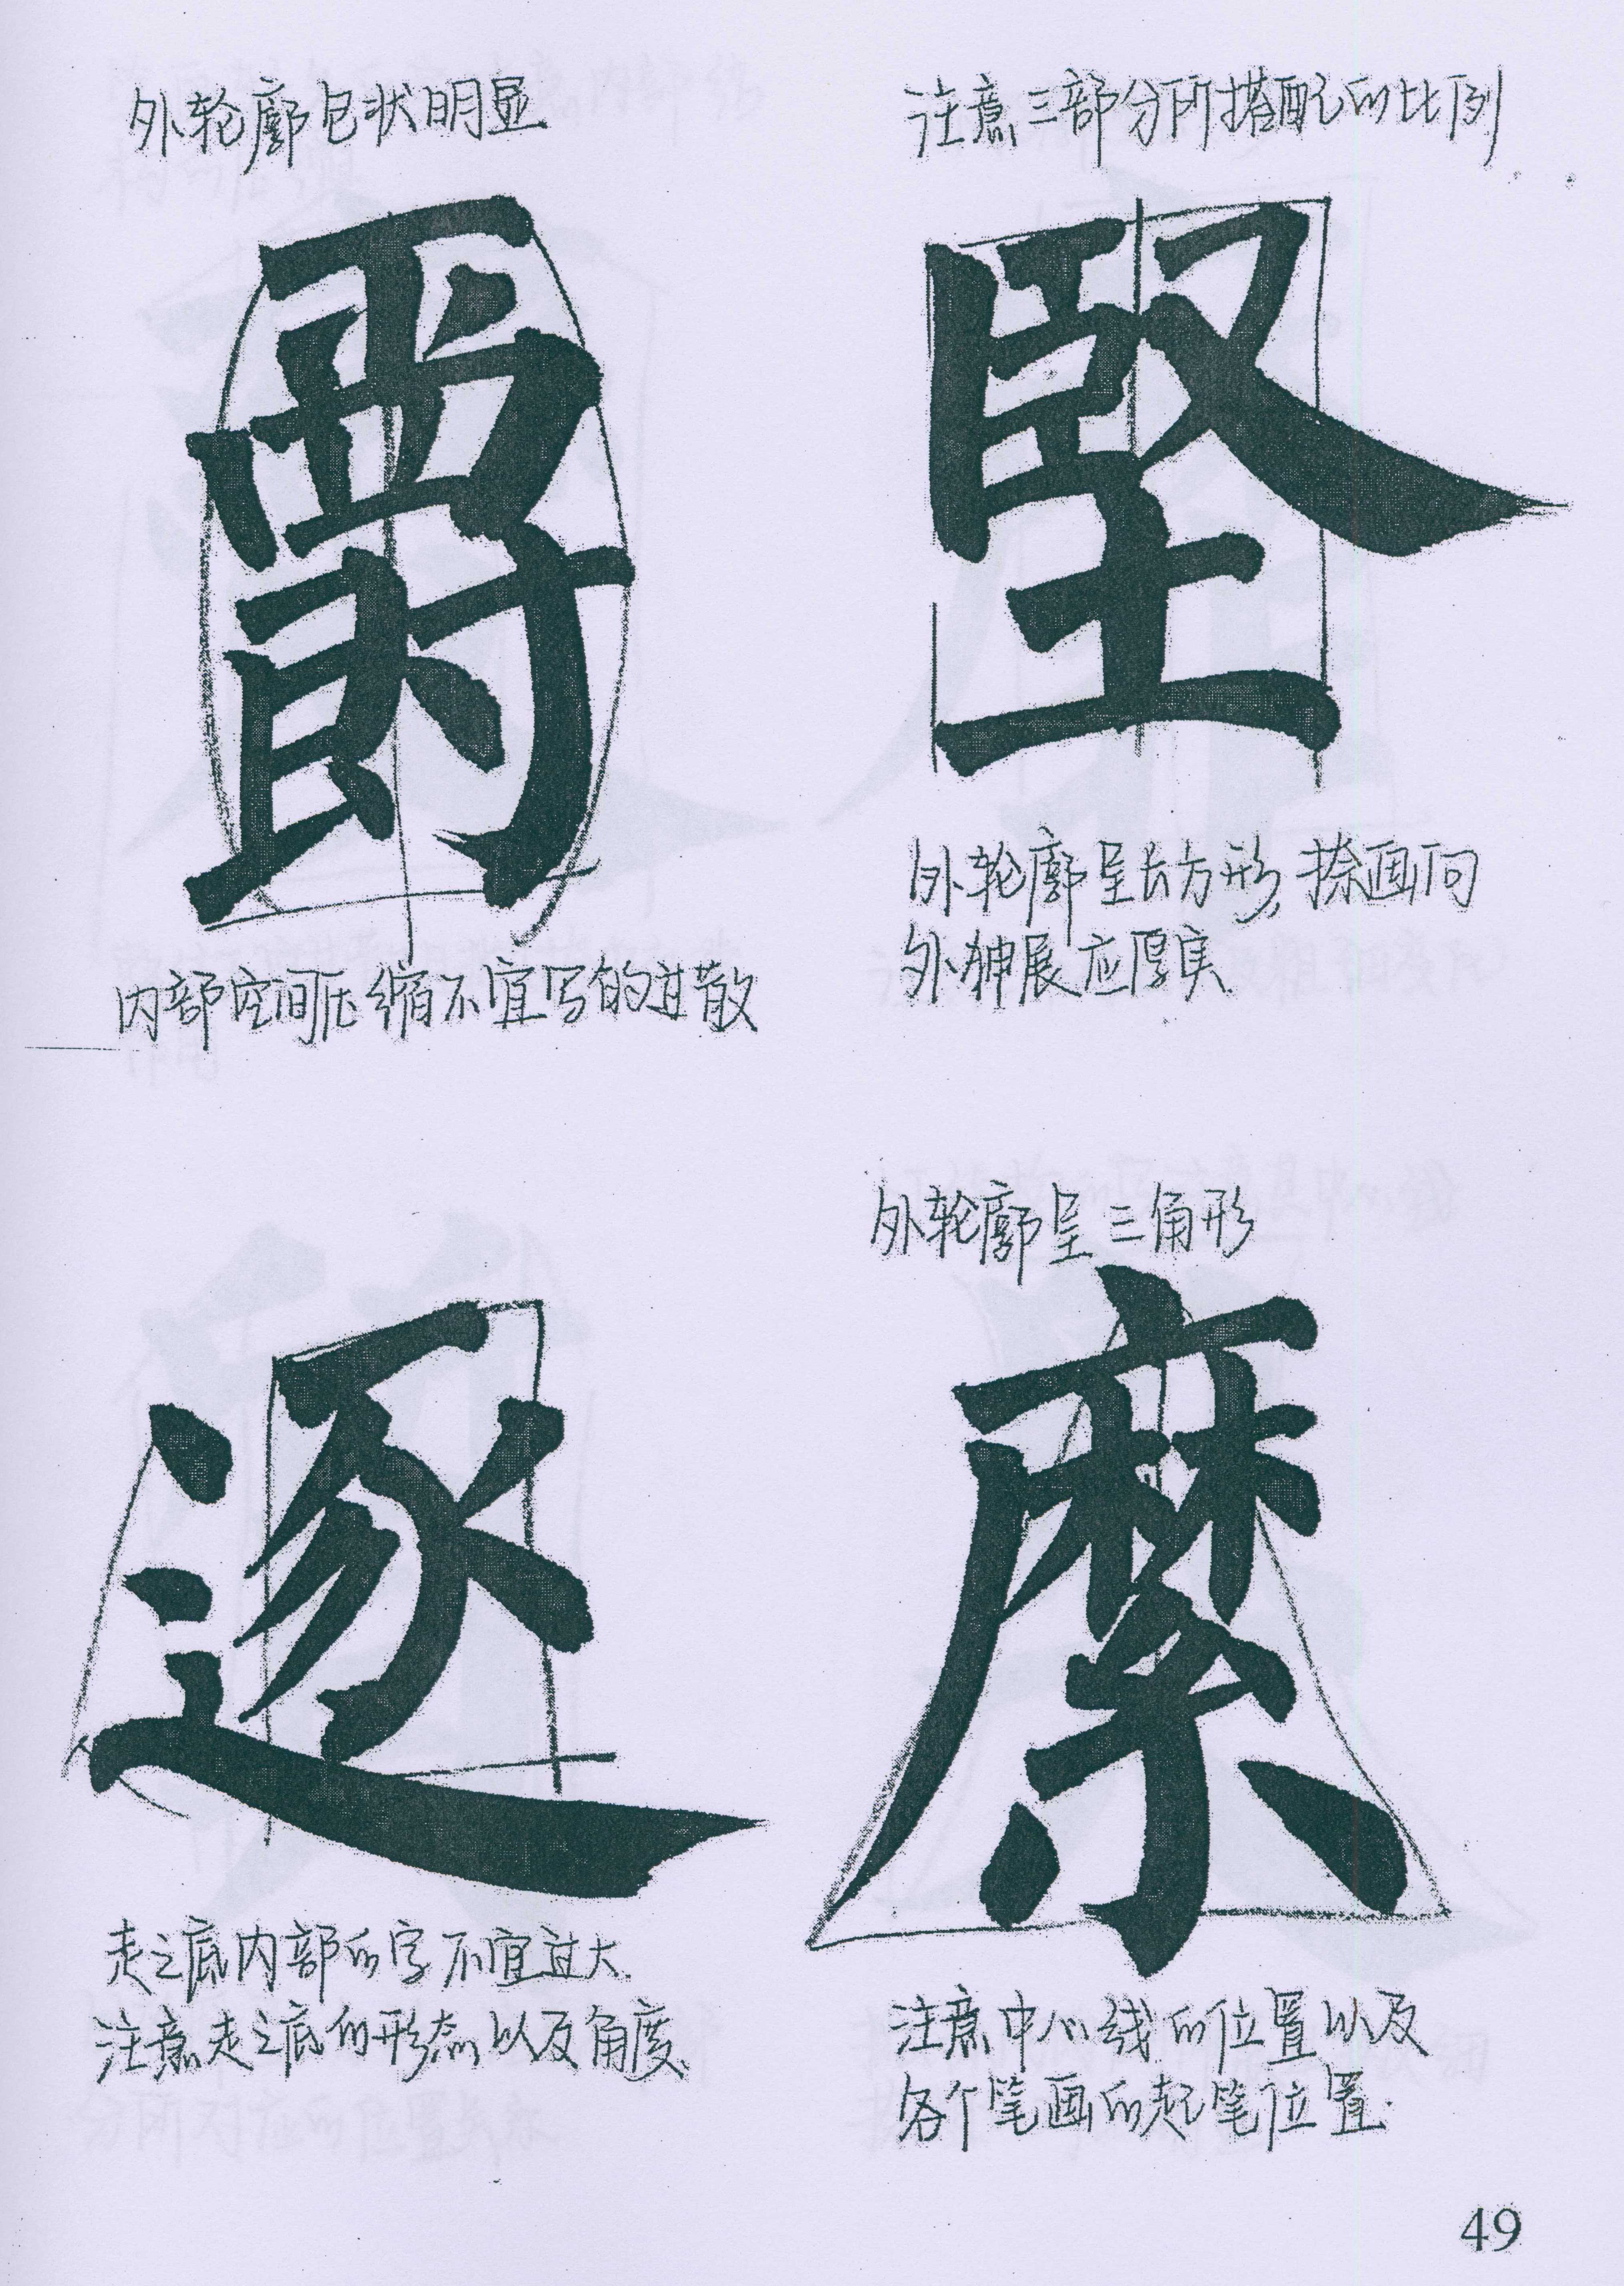 外轮廓包状明显
爵
内部空间压缩不宜写的过散
注意三部分所搭配的比例
堅
外轮廓呈长方形,捺画向
外伸展应厚实
逐
走之底内部的字不宜过大.
注意走之底的形态以及角度.
外轮廓呈三角形
縻
注意中心线的位置以及
各个笔画的起笔位置.
49